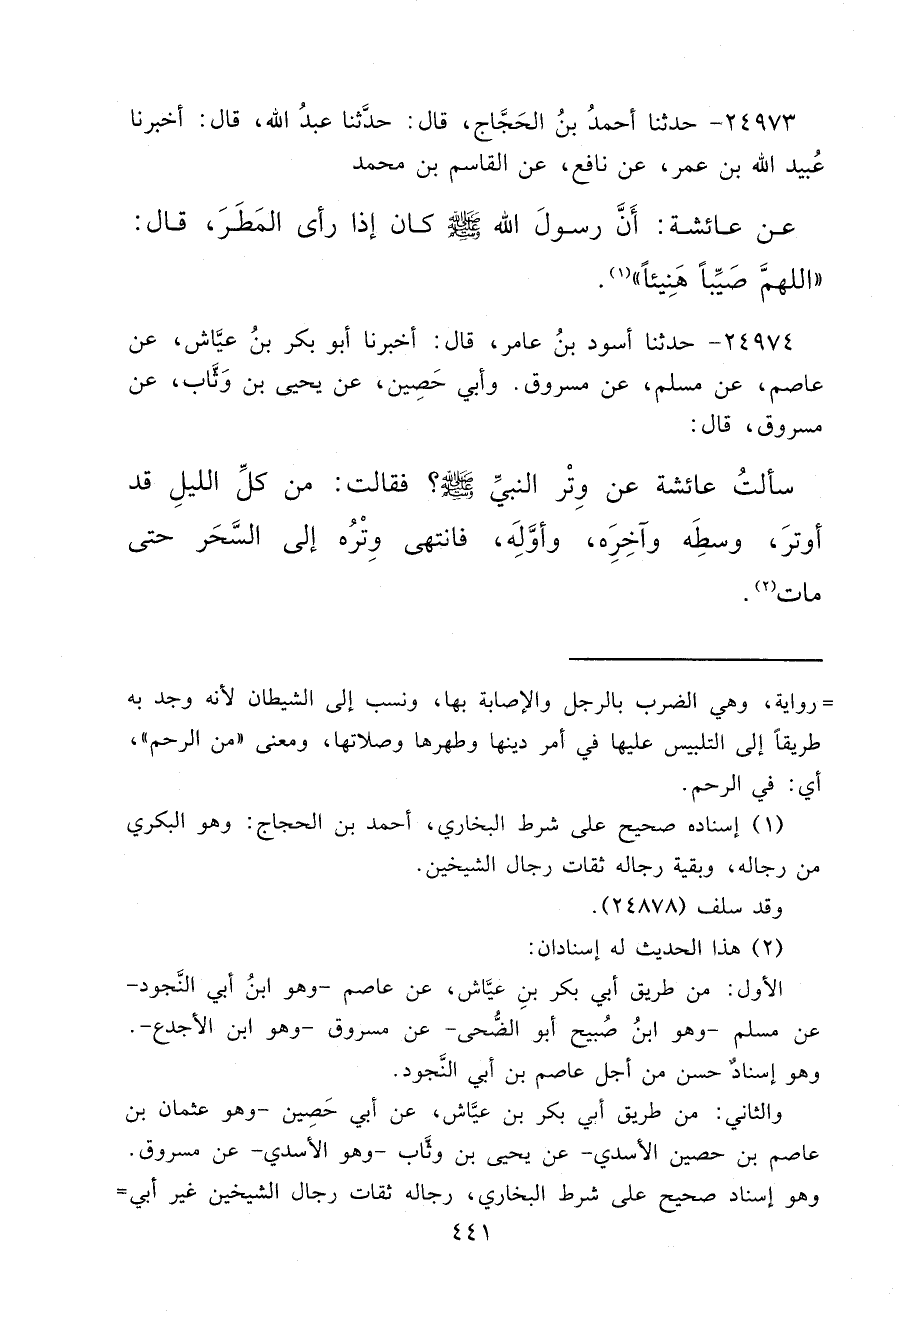 ٢٤٩٧٣- حدثنا أحمدُ بنُ الحَجَّاج، قال: حدَّثنا عبدُ الله، قال: أخبرنا
عُبيد الله بن عمر، عن نافع، عن القاسم بن محمد
عن عائشة: أَنَّ رسولَ الله ﷺ كان إذا رأى المَطَرَ، قال:
«اللهمَّ صَيِّباً هَنِيئاً»(١).
٢٤٩٧٤- حدثنا أسود بنُ عامر، قال: أخبرنا أبو بكر بنُ عيَّاش، عن
عاصم، عن مسلم، عن مسروق. وأبي حَصِين، عن يحيى بن وَثَّاب، عن
مسروق، قال:
سألتُ عائشة عن وِتْر النبيِّ ﷺ؟ فقالت: من كلِّ الليلِ قد
أوترَ، وسطِه وآخِرِه، وأوَّلِه، فانتهى وِتْرُه إلى السَّحَر حتى
مات(٢).
= رواية، وهي الضرب بالرجل والإصابة بها، ونسب إلى الشيطان لأنه وجد به
طريقاً إلى التلبيس عليها في أمر دينها وطهرها وصلاتها، ومعنى «من الرحم»،
أي: في الرحم.
(١) إسناده صحيح على شرط البخاري، أحمد بن الحجاج: وهو البكري
من رجاله، وبقية رجاله ثقات رجال الشيخين.
وقد سلف (٢٤٨٧٨).
(٢) هذا الحديث له إسنادان:
الأول: من طريق أبي بكر بنِ عيَّاش، عن عاصم -وهو ابنُ أبي النَّجود-
عن مسلم -وهو ابنُ صُبيح أبو الضُّحى- عن مسروق -وهو ابن الأجدع-.
وهو إسنادٌ حسن من أجل عاصم بن أبي النَّجود.
والثاني: من طريق أبي بكر بن عيَّاش، عن أبي حَصِين -وهو عثمان بن
عاصم بن حصين الأسدي- عن يحيى بن وثَّاب -وهو الأسدي- عن مسروق.
وهو إسناد صحيح على شرط البخاري، رجاله ثقات رجال الشيخين غير أبي=
٤٤١